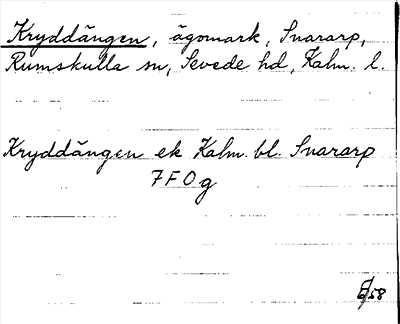 Kryddängen, ägomark, Snararp,
Rumskulla sn, Sevede hd, Kalm. l.
Kryddängen ek Kalm. bl. Snararp
7F0g
58